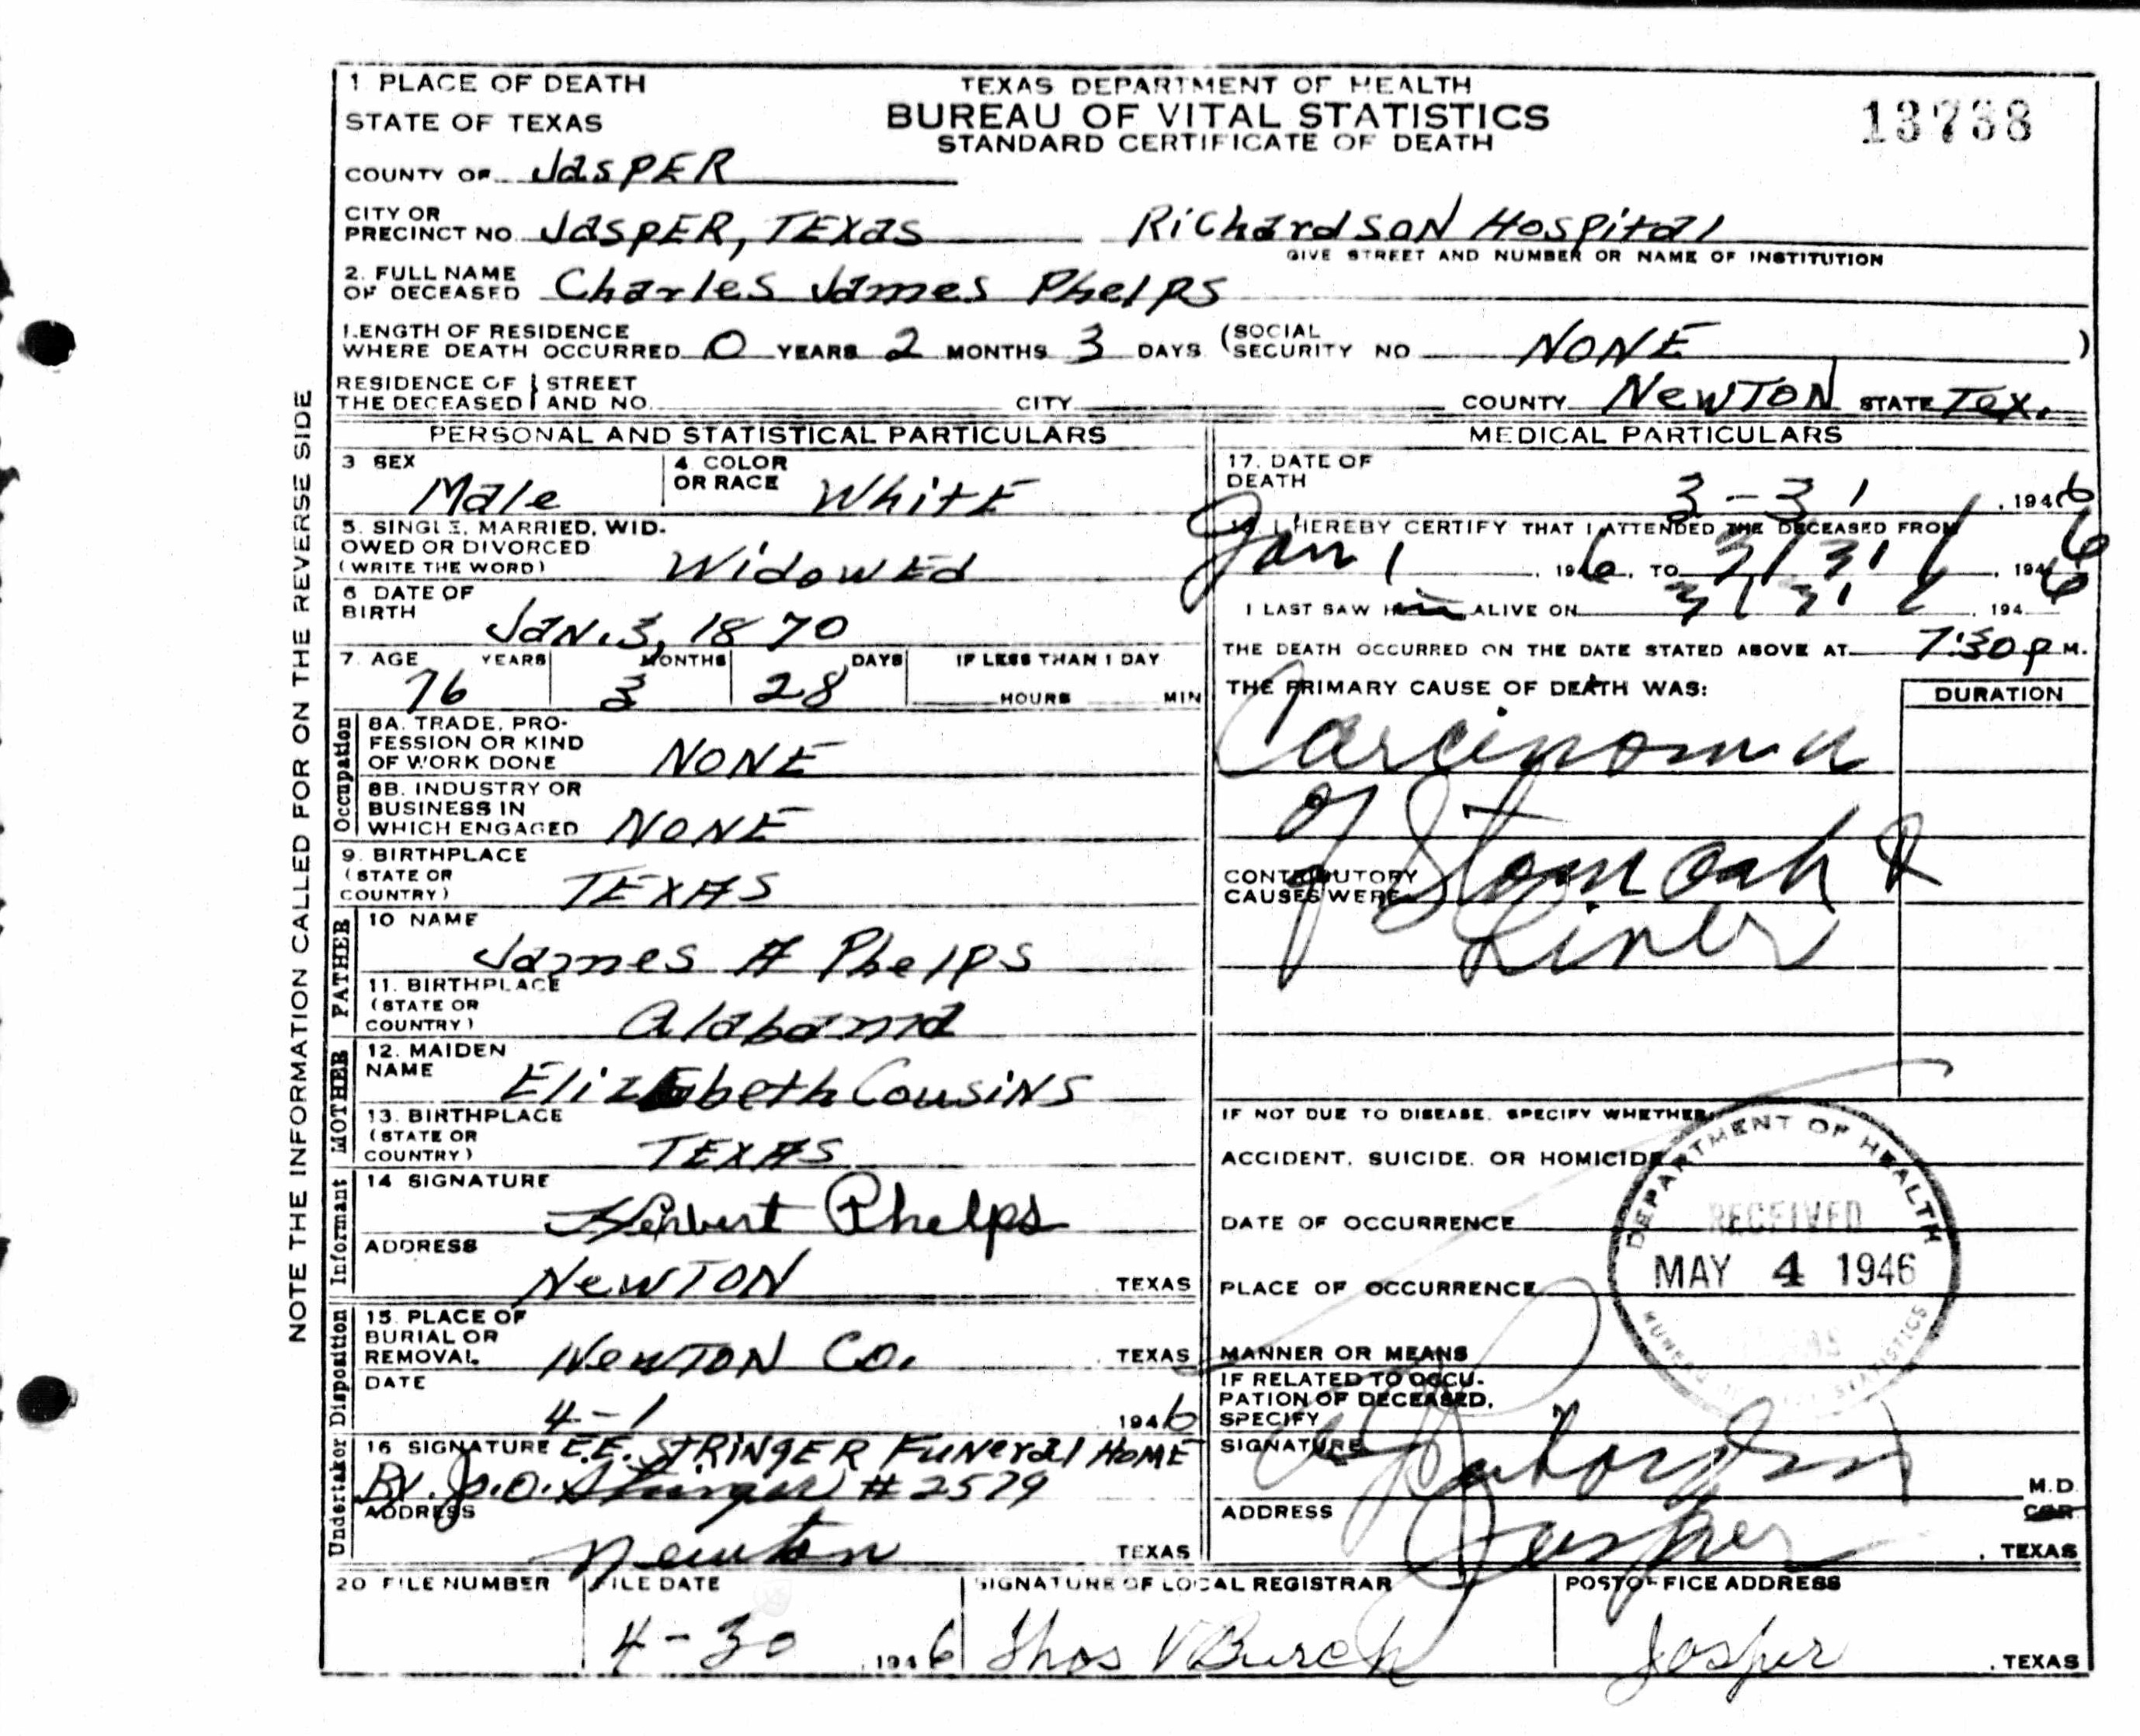 1 PLACE OF DEATH
STATE OF TEXAS
TEXAS DEPARTMENT OF HEALTH
BUREAU OF VITAL STATISTICS
STANDARD CERTIFICATE OF DEATH
13738
COUNTY OF JASPER
CITY OR PRECINCT NO. JASPER, TEXAS Richardson Hospital
GIVE STREET AND NUMBER OR NAME OF INSTITUTION
2. FULL NAME OF DECEASED Charles James Phelps
LENGTH OF RESIDENCE WHERE DEATH OCCURRED 0 YEARS 2 MONTHS 3 DAYS (SOCIAL SECURITY NO NONE)
RESIDENCE OF THE DECEASED STREET AND NO. CITY COUNTY NEWTON STATE Tex.
PERSONAL AND STATISTICAL PARTICULARS
3 SEX Male
4. COLOR OR RACE White
5. SINGLE, MARRIED, WIDOWED OR DIVORCED (WRITE THE WORD) Widowed
6 DATE OF BIRTH Jan. 3, 1870
7. AGE YEARS MONTHS DAYS IF LESS THAN 1 DAY
76 3 28 HOURS MIN
Occupation
8A. TRADE, PROFESSION OR KIND OF WORK DONE NONE
8B. INDUSTRY OR BUSINESS IN WHICH ENGAGED NONE
9. BIRTHPLACE (STATE OR COUNTRY) TEXAS
FATHER
10 NAME James A Phelps
11. BIRTHPLACE (STATE OR COUNTRY) Alabama
MOTHER
12. MAIDEN NAME Elizabeth Cousins
13. BIRTHPLACE (STATE OR COUNTRY) TEXAS
Informant
14 SIGNATURE Herbert Phelps
ADDRESS NEWTON TEXAS
Disposition
15. PLACE OF BURIAL OR REMOVAL NEWTON CO. TEXAS
DATE 4-1 1946
Undertaker
16 SIGNATURE E.E. STRINGER Funeral HOME
By. J.O. Stringer #2579
ADDRESS Newton TEXAS
MEDICAL PARTICULARS
17. DATE OF DEATH 3-31, 1946
I HEREBY CERTIFY THAT I ATTENDED THE DECEASED FROM
Jan 1, 1946, TO 3/31/, 1946
I LAST SAW him ALIVE ON 3/31/, 1946
THE DEATH OCCURRED ON THE DATE STATED ABOVE AT 7:30 P M.
THE PRIMARY CAUSE OF DEATH WAS: DURATION
Carcinoma
of Stomach &
CONTRIBUTORY CAUSES WERE
Liver
IF NOT DUE TO DISEASE, SPECIFY WHETHER
ACCIDENT, SUICIDE, OR HOMICIDE
DATE OF OCCURRENCE
PLACE OF OCCURRENCE
MANNER OR MEANS
IF RELATED TO OCCUPATION OF DECEASED, SPECIFY
SIGNATURE M.D.
COR
ADDRESS Jasper, TEXAS
DEPARTMENT OF HEALTH
RECEIVED
MAY 4 1946
STATISTICS
20 FILE NUMBER FILE DATE SIGNATURE OF LOCAL REGISTRAR POSTOFFICE ADDRESS
4-30 1946 Thos V Burch Jasper, TEXAS
NOTE THE INFORMATION CALLED FOR ON THE REVERSE SIDE